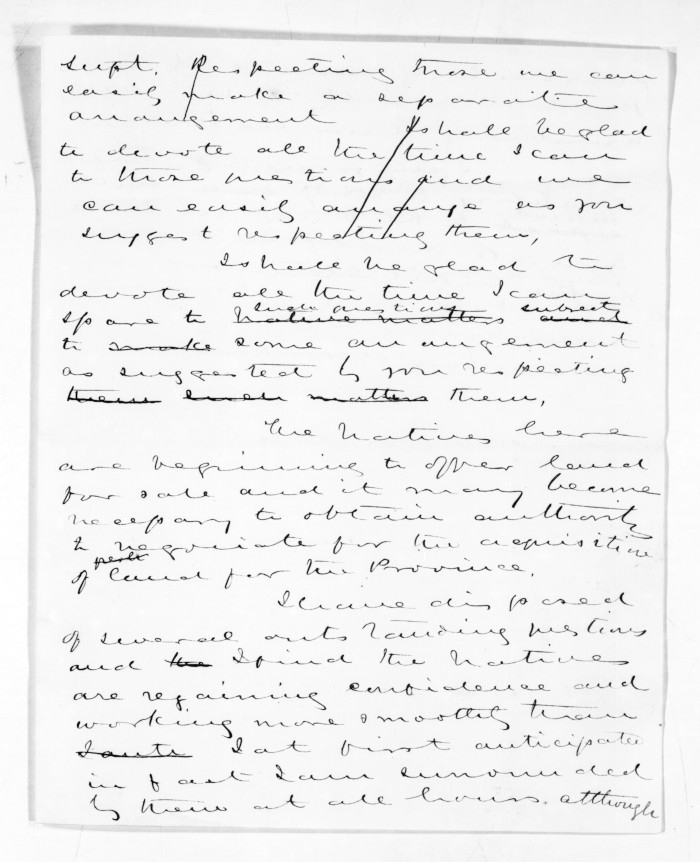 Supt. Respecting those we can
easily make a separate
arrangement I shall be glad
to devote all the time I can
to those questions and we
can easily arrange as you
suggest respecting them,
I shall be glad to
devote all the time I can
such questions subject
spare to Native matters and
to make some arrangement
as suggested by you respecting
them such matters them,
The Natives here
are beginning to offer land
for sale and it may become
necessary to obtain authority
to negotiate for the acquisition
of land for the Province.
I have disposed
of several outstanding questions
and the I find the Natives
are regaining confidence and
working more smoothly than
I at first anticipated
in fact I am surrounded
by them at all hours. although